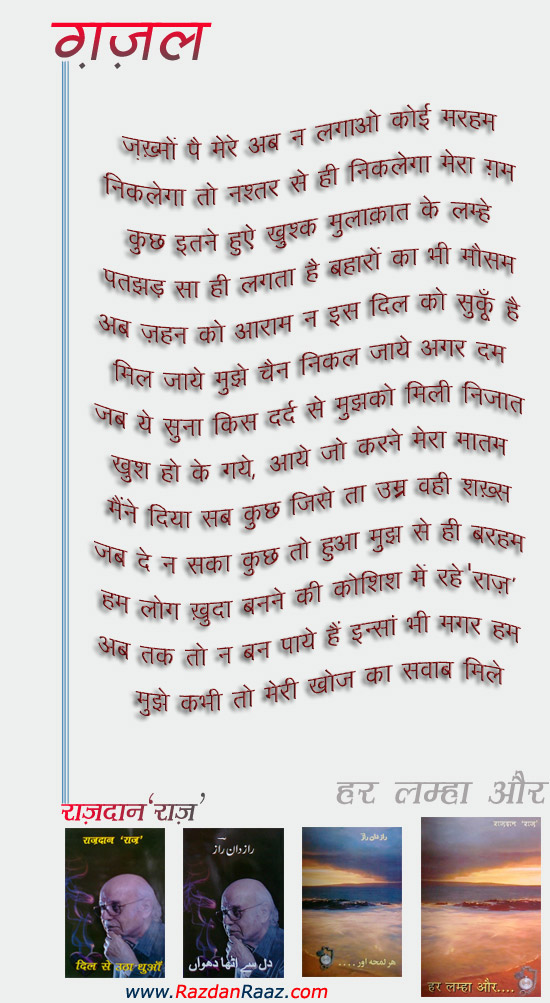 ग़ज़ल
ज़ख़्मों पै मेरे अब न लगाओ कोई मरहम
निकलेगा तो नश्तर से ही निकलेगा मेरा ग़म
कुछ इतने हुऐ ख़ुश्क मुलाक़ात के लम्हे
पतझड़ सा ही लगता है बहारों का भी मौसम
अब ज़हन को आराम न इस दिल को सुकूँ है
मिल जाये मुझे चैन निकल जाये अगर दम
जब ये सुना किस दर्द से मुझको मिली निजात
खुश हो के गये, आये जो करने मेरा मातम
मैंने दिया सब कुछ जिसे ता उम्र वही शख़्स
जब दे न सका कुछ तो हुआ मुझ से ही बरहम
हम लोग ख़ुदा बनने की कोशिश में रहे 'राज़'
अब तक तो न बन पाये हैं इन्सां भी मगर हम
मुझे कभी तो मेरी खोज का सवाब मिले
हर लम्हा और
राज़दान 'राज़'
राज़दान 'राज़'
दिल से उठा धुआँ
رازدان رازؔ
دل سے اٹھا دھواں
رازدان راز
ھر لمحہ اور ....
राज़दान 'राज़'
हर लम्हा और....
www.RazdanRaaz.com